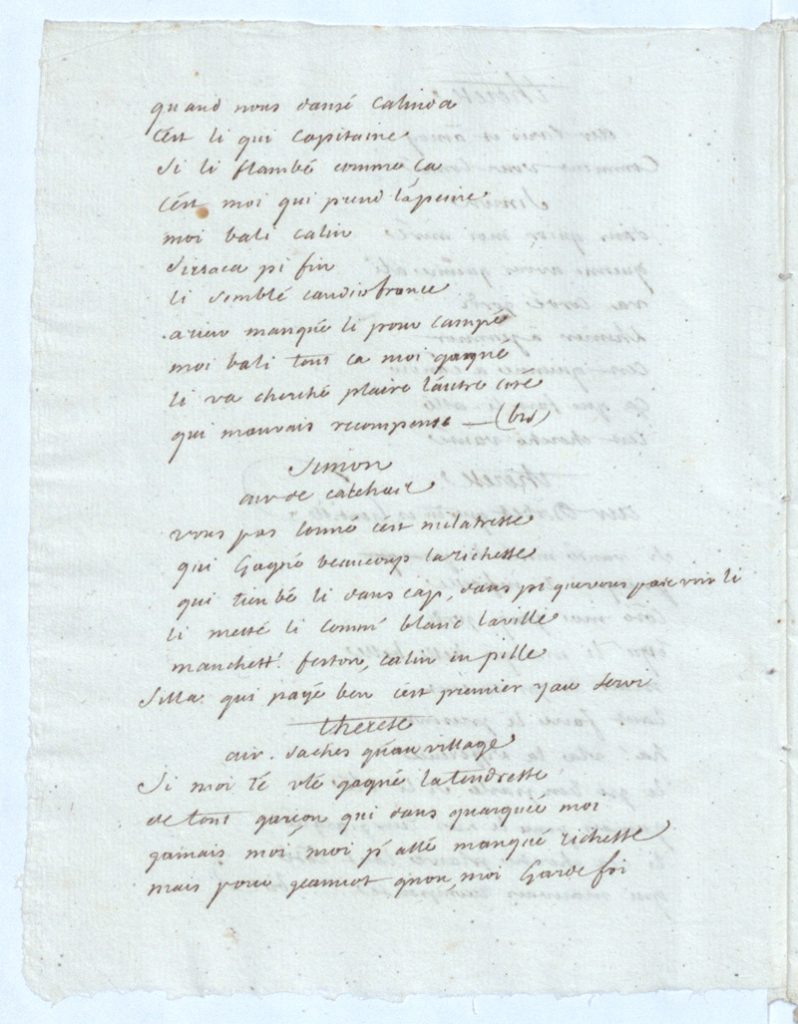 quand nous dansé calinda
c'est li qui capitaine
si li flambé comme ça
c'est moi qui prend la peine
moi bali calin
siesaca pi fin
li semblé candiofrance
a rien manqué li pour campé
moi bali tout ca moi gagné
li va cherché plaire lautre coté
qui mauvais recompense — (bis)
Simon
air de catchair
vous pas conné c'est milatresse
qui Gagné beaucoup larichesse
qui tienbé li dans cap, dans pi que vous pas voir li
li metté li comm' blanc laville
manchett' feston, calin in pille
Silla qui payé ben c'est premier yau servi
therese
air. Saches qu'au village
Si moi té vlé gagné latendresse
de tout garçon qui dans quarquié moi
gamais moi, moi p' allé manqué richesse
mais pour geannot qnon, moi Garde foi